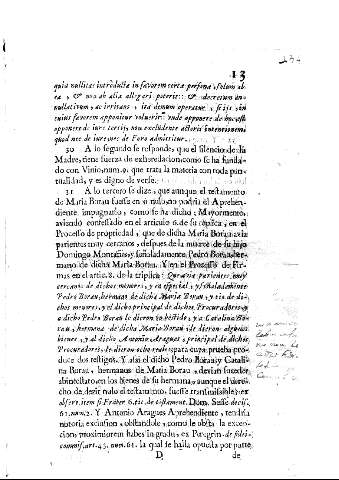 13
quia nullitas introducta in favorem certæ personæ, solum ab
ea, & non ab alia allegari poterit: & decretum an-
nullativum, ac irritans, ita demum operatur, si is, in
cuius favorem apponitur voluerit: unde apponere de hoc, est
apponere de iure tertij, non excludente actoris intentionem:
quod nec de iure, nec de Foro admittitur.
30 A lo segundo se responde, que el silencio de la
Madre, tiene fuerça de exheredacion, como se ha funda-
do con Vinio, num. 9. que trata la materia con toda pun-
tualidad, y es digno de verse.
31 A lo tercero se dize, que aunque el testamento
de Maria Borau fuesse nulo, no podria el Aprehen-
diente impugnarlo, como se ha dicho; Mayormente,
aviendo confessado en el articulo 6. de su replica, en el
Processo de propriedad, que de dicha Maria Borau avia
parientes muy cercanos, despues de la muerte de su hijo
Domingo Montañes, y señaladamente Pedro Borau her-
mano de dicha Maria Borau. Y en el Processo de Fir-
mas en el artic. 8. de la triplica: Que avia parientes muy
cercanos de dichos menores, y en especial, y señaladamente
Pedro Borau, hermano de dicha Maria Borau, y tio de di-
chos menores, y el dicho principal de dichos Procuradores
a dicho Pedro Borau le dieron un vestido, y a Catalina Bo-
rau, hermana de dicha Maria Borau le dieron algunos
bienes, y al dicho Antonio Aragues, principal de dichos
Procuradores, le dieron ocho reales para cuya prueba pro-
duce dos testigos. Y assi el dicho Pedro Borau, y Catali-
na Borau, hermanos de Maria Borau, devian suceder
abintestato en los bienes de su hermana, aunque el dere-
cho de dezir nulo el testamento, fuesse transmissible: ex
observ. item si Frater 6. tit. de testament. Dom. Sesse decis.
61. num. 2. Y Antonio Aragues Aprehendiente, tendria
notoria exclusion, obstandole, como le obsta la excep-
cions proximiorem habes in gradu, ex Peregrin. de fidei-
commis. art. 43. num. 61. la qual se halla opuesta por parte
D
de